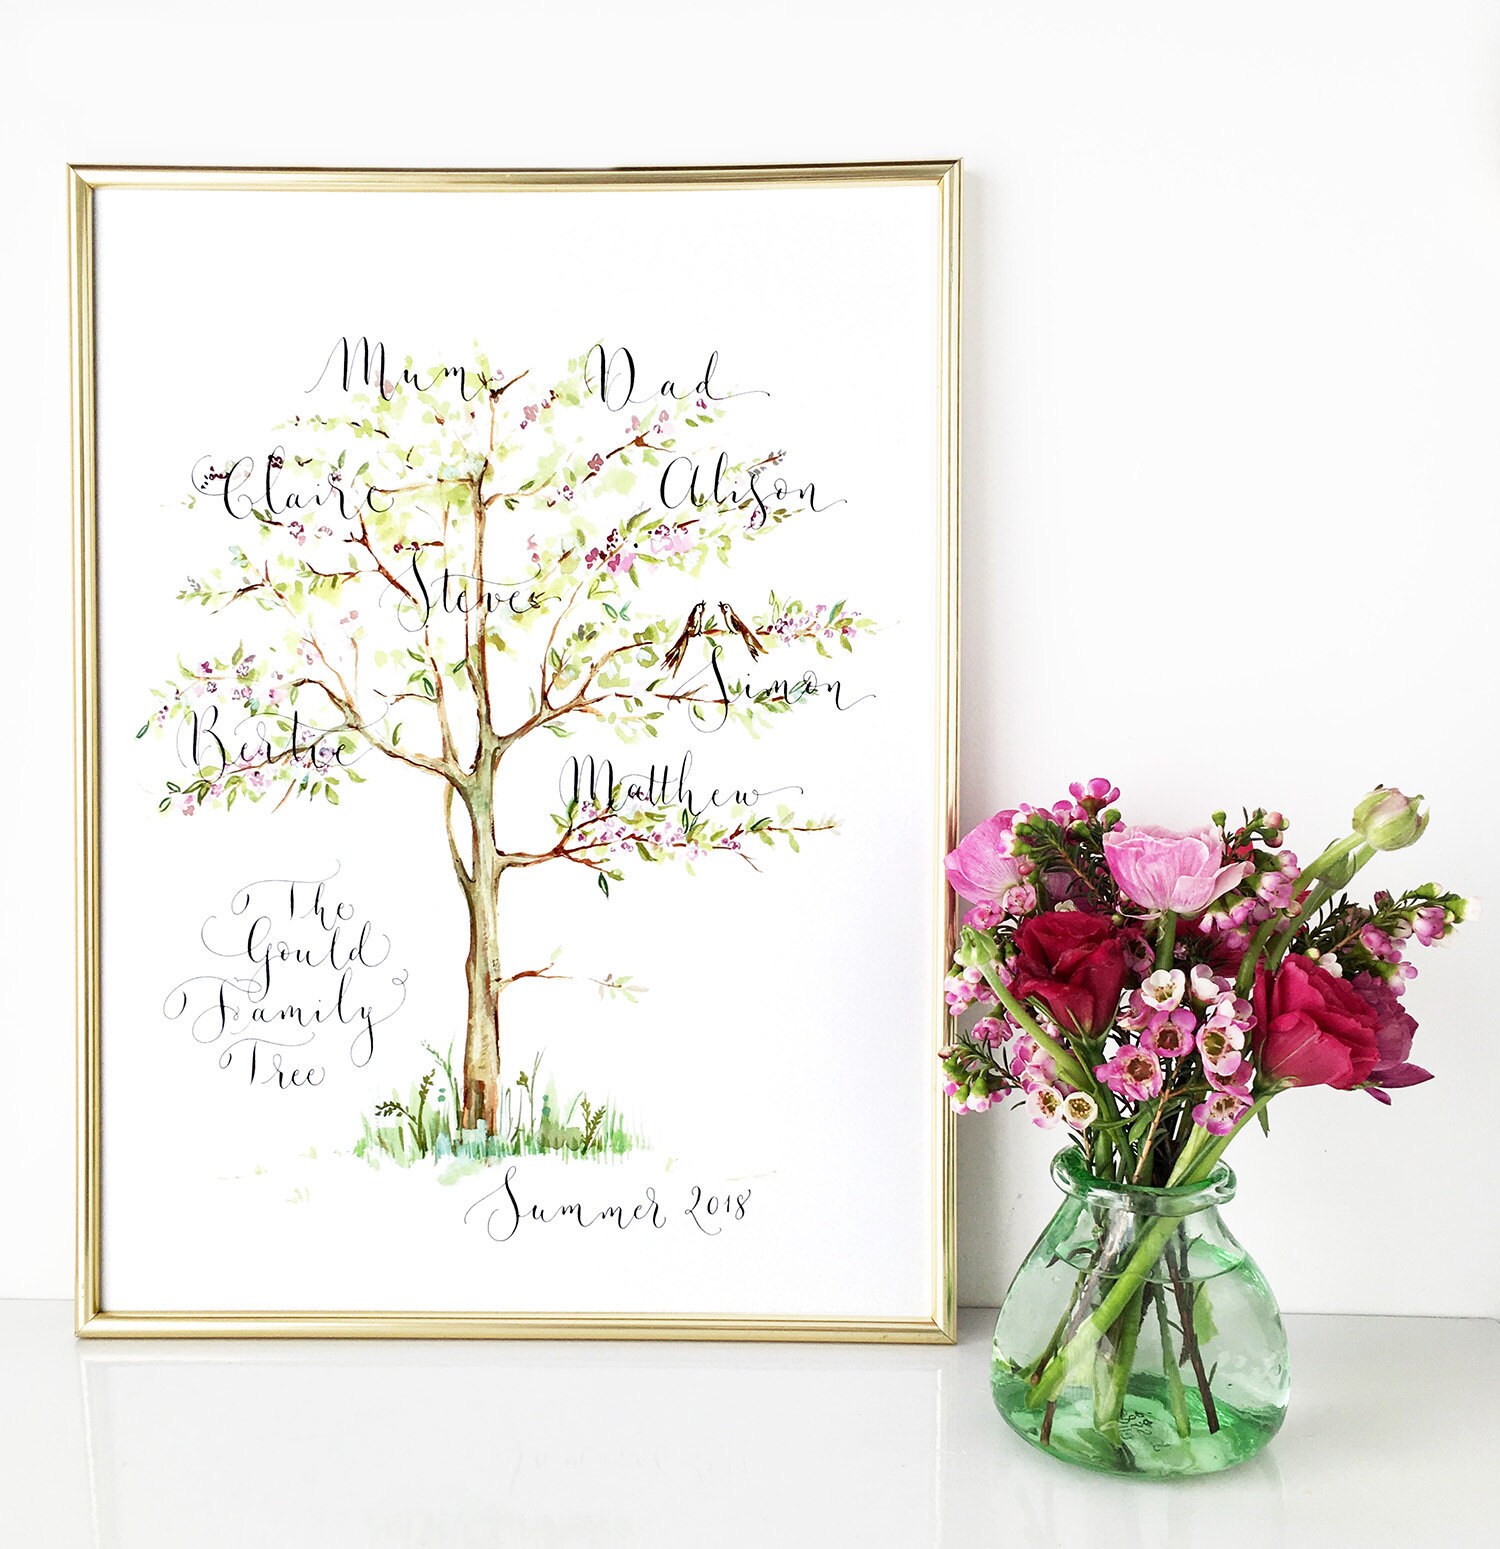 Mum Dad
Claire Alison
Steve
Simon
Bertie
Matthew
The
Gould
Family
Tree
Summer 2018